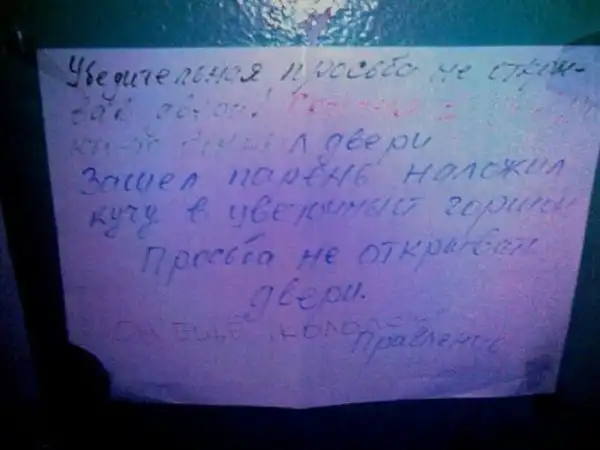 Убедительная просьба не откры-
вать
двери
Зашел парень наложил
кучу в цветочный горшок
Просьба не открыват
двери.
Он еще
Правление